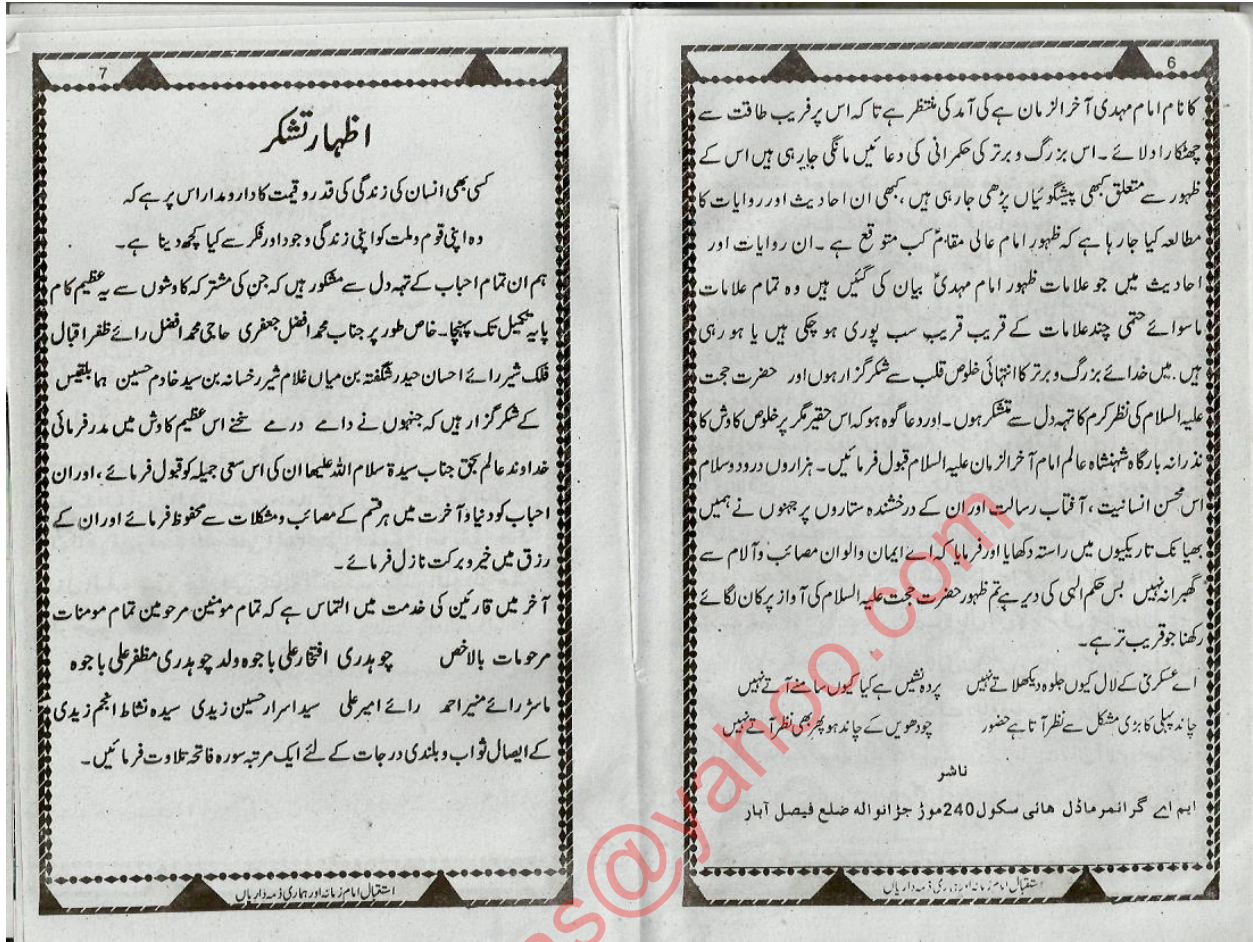 6
کا نام امام مہدی آخر الزمان ہے کی آمد کی منتظر ہے تاکہ اس پر فریب طاقت سے
چھٹکارا دلائے ۔ اس بزرگ و برتر کی حکمرانی کی دعائیں مانگی جا رہی ہیں اس کے
ظہور سے متعلق کبھی پیشگوئیاں پڑھی جارہی ہیں ، کبھی ان احادیث اور روایات کا
مطالعہ کیا جا رہا ہے کہ ظہور امام عالی مقامؑ کب متوقع ہے ۔ ان روایات اور
احادیث میں جو علامات ظہور امام مہدیؑ بیان کی گئیں ہیں وہ تمام علامات
ماسوائے حتمی چند علامات کے قریب قریب سب پوری ہو چکی ہیں یا ہو رہی
ہیں. میں خدائے بزرگ و برتر کا انتہائی خلوص قلب سے شکر گزار ہوں اور حضرت حجت
علیہ السلام کی نظر کرم کا تہہ دل سے متشکر ہوں۔ اور دعا گو ہو کہ اس حقیر مگر پر خلوص کاوش کا
نذرانہ بارگاہ شہنشاہ عالم امام آخر الزمان علیہ السلام قبول فرمائیں۔ ہزاروں درود و سلام
اس محسن انسانیت ، آفتاب رسالت اور ان کے درخشندہ ستاروں پر جہنوں نے ہمیں
بھیانک تاریکیوں میں راستہ دکھایا اور فرمایا کہ اے ایمان والو ان مصائب و آلام سے
گھبرانہ نہیں بس حکم الٰہی کی دیر ہے تم ظہور حضرت حجت علیہ السلام کی آواز پر کان لگائے
رکھنا جو قریب تر ہے۔
اے عسکریؑ کے لال کیوں جلوہ دیکھلاتے نہیں پردہ نشیں ہے کیا کیوں سامنے آتے نہیں
چاند پہلی کا بڑی مشکل سے نظر آتا ہے حضور چودھویں کے چاند ہو پھر بھی نظر آتے نہیں
ناشر
ایم اے گرائمر ماڈل ھائی سکول 240 موڑ جڑانوالہ ضلع فیصل آباد
استقبال امام زمانہ اور ہماری ذمہ داریاں
7
اظہار تشکر
کسی بھی انسان کی زندگی کی قدر و قیمت کا دار و مدار اس پر ہے کہ
وہ اپنی قوم و ملت کو اپنی زندگی وجود اور فکر سے کیا کچھ دینا ہے۔
ہم ان تمام احباب کے تہہ دل سے مشکور ہیں کہ جن کی مشترکہ کاوشوں سے یہ عظیم کام
پایہ تکمیل تک پہنچا۔ خاص طور پر جناب محمد افضل جعفری حاجی محمد افضل رائے ظفر اقبال
فلک شیر رائے احسان حیدر شگفتہ بن میاں غلام شبیر رخسانہ بن سید خادم حسین ہما بلقیس
کے شکر گزار ہیں کہ جنہوں نے دامے درمے سخنے اس عظیم کاوش میں مدد فرمائی
خداوند عالم بحق جناب سیدۃ سلام اللہ علیھا ان کی اس سعی جمیلہ کو قبول فرمائے ، اور ان
احباب کو دنیا و آخرت میں ہر قسم کے مصائب و مشکلات سے محفوظ فرمائے اور ان کے
رزق میں خیر و برکت نازل فرمائے۔
آخر میں قارئین کی خدمت میں التماس ہے کہ تمام مومنین مرحومین تمام مومنات
مرحومات بالاخص چوہدری افتخار علی باجوہ ولد چوہدری مظفر علی باجوہ
ماسٹر رائے منیر احمد رائے امیر علی سید اسرار حسین زیدی سیدہ نشاط انجم زیدی
کے ایصال ثواب و بلندی درجات کے لئے ایک مرتبہ سورہ فاتحہ تلاوت فرمائیں۔
استقبال امام زمانہ اور ہماری ذمہ داریاں
@yahoo.com